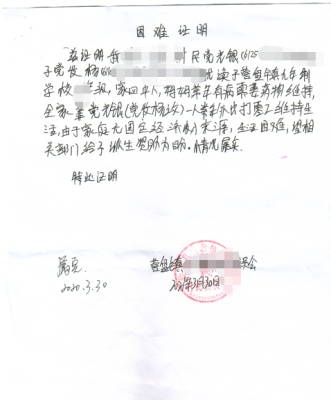 困难证明
兹证明我 村民党光银(6125
子党发杨 就读于营盘镇九年制
学校 年级,家四口人,妈妈常年有病需要药物维持,
全家靠党光银(党发杨父)一人常年外出打零工维持生
活,由于家庭无固定经济来源,生活困难,望相
关部门给予该生资助为盼。情况属实
特此证明
属实
2020.3.30
营盘镇 委会
2020年3月30日